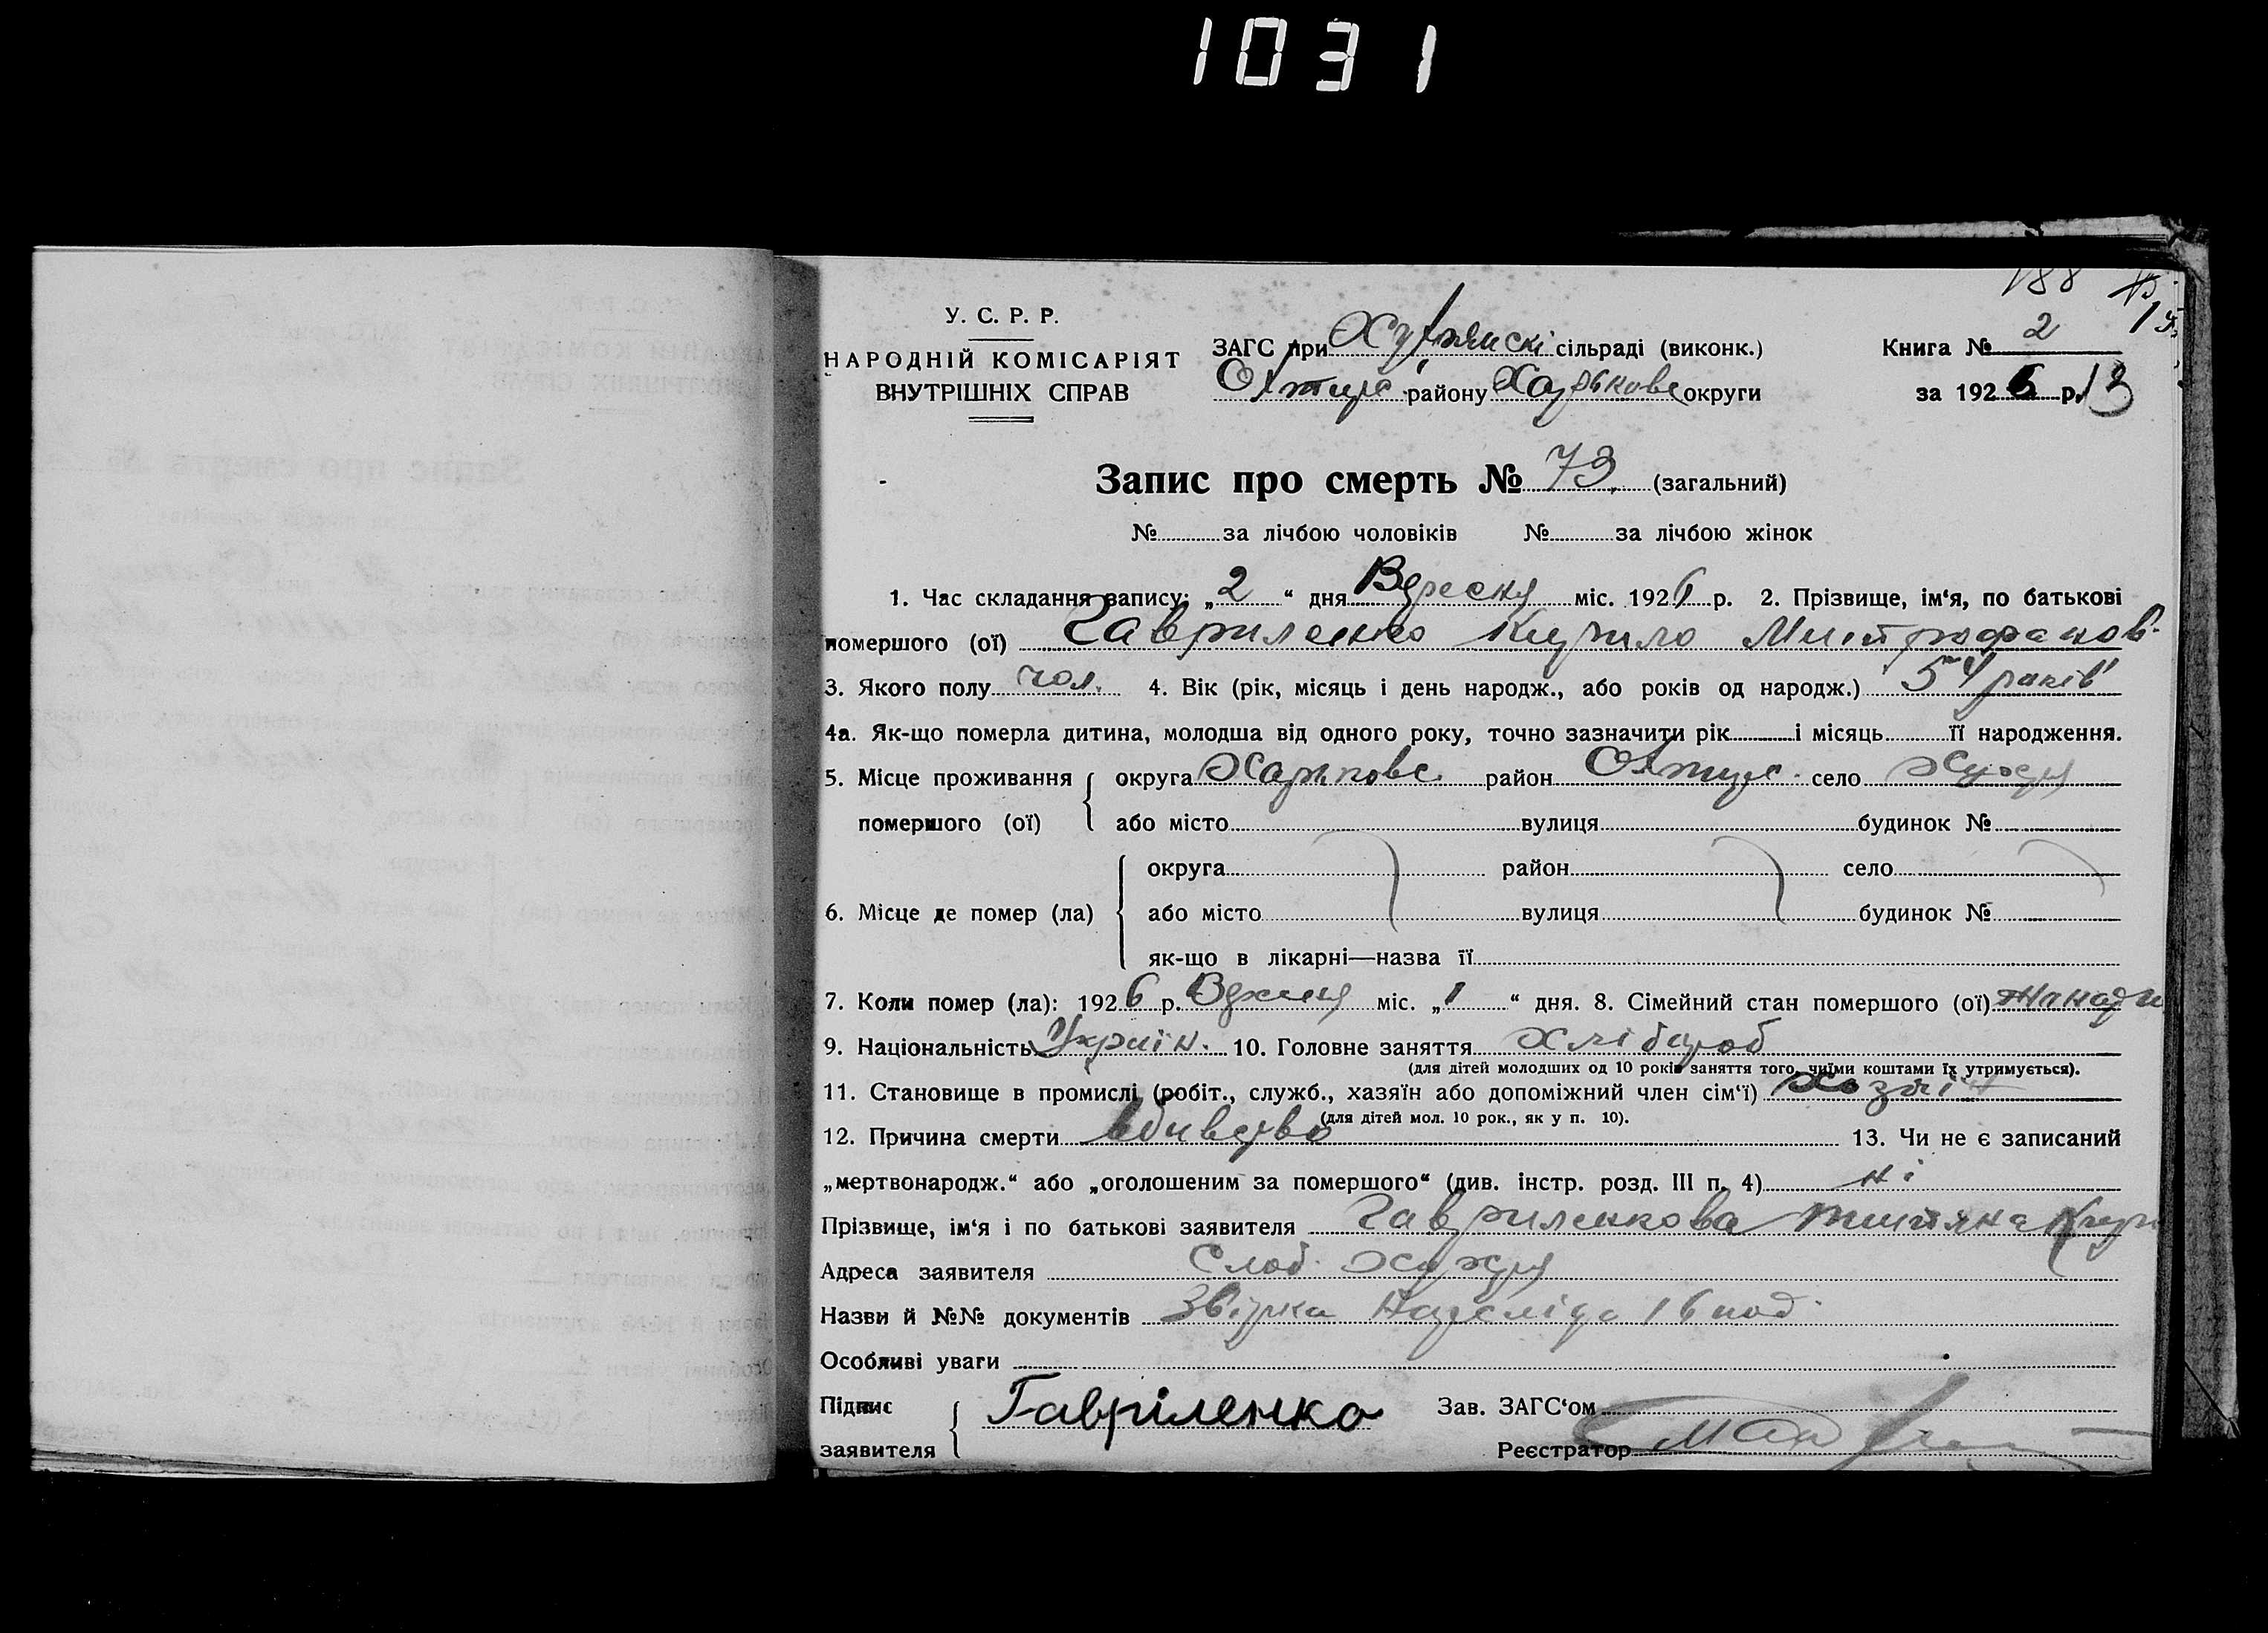 1031
188
У. С. Р. Р.
НАРОДНІЙ КОМІСАРІЯТ
ВНУТРІШНІХ СПРАВ
ЗАГС при сільраді (виконк.)
Охтир. району Харькове округи
Книга № 2
за 1926 р. 13
Запис про смерть № 73. (загальний)
№ за лічбою чоловіків № за лічбою жінок
1. Час складання запису: „2“ дня Вересня міс. 1926 р. 2. Прізвище, ім‘я, по батькові
помершого (ої) Гавриленко Кирило Митрофанов.
3. Якого полу чол. 4. Вік (рік, місяць і день народж., або років од народж.) 54 років
4а. Як-що померла дитина, молодша від одного року, точно зазначити рік і місяць її народження.
5. Місце проживання округа Харькове район Охтир. село
помершого (ої) або місто вулиця будинок №
округа район село
6. Місце де помер (ла) або місто вулиця будинок №
як-що в лікарні—назва її
7. Коли помер (ла): 1926 р. міс. „1“ дня. 8. Сімейний стан помершого (ої)
9. Національність Україн. 10. Головне заняття Хлібороб
(для дітей молодших од 10 років заняття того, чиїми коштами їх утримується).
11. Становище в промислі (робіт., служб., хазяїн або допоміжний член сім‘ї) хазяїн
(для дітей мол. 10 рок., як у п. 10).
12. Причина смерти вбивство 13. Чи не є записаний
„мертвонародж.“ або „оголошеним за помершого“ (див. інстр. розд. III п. 4) ні
Прізвище, ім‘я і по батькові заявителя Гавриленкова
Адреса заявителя Слоб.
Назви й №№ документів
Особливі уваги
Підпис Гавріленко Зав. ЗАГС‘ом
заявителя Реєстратор